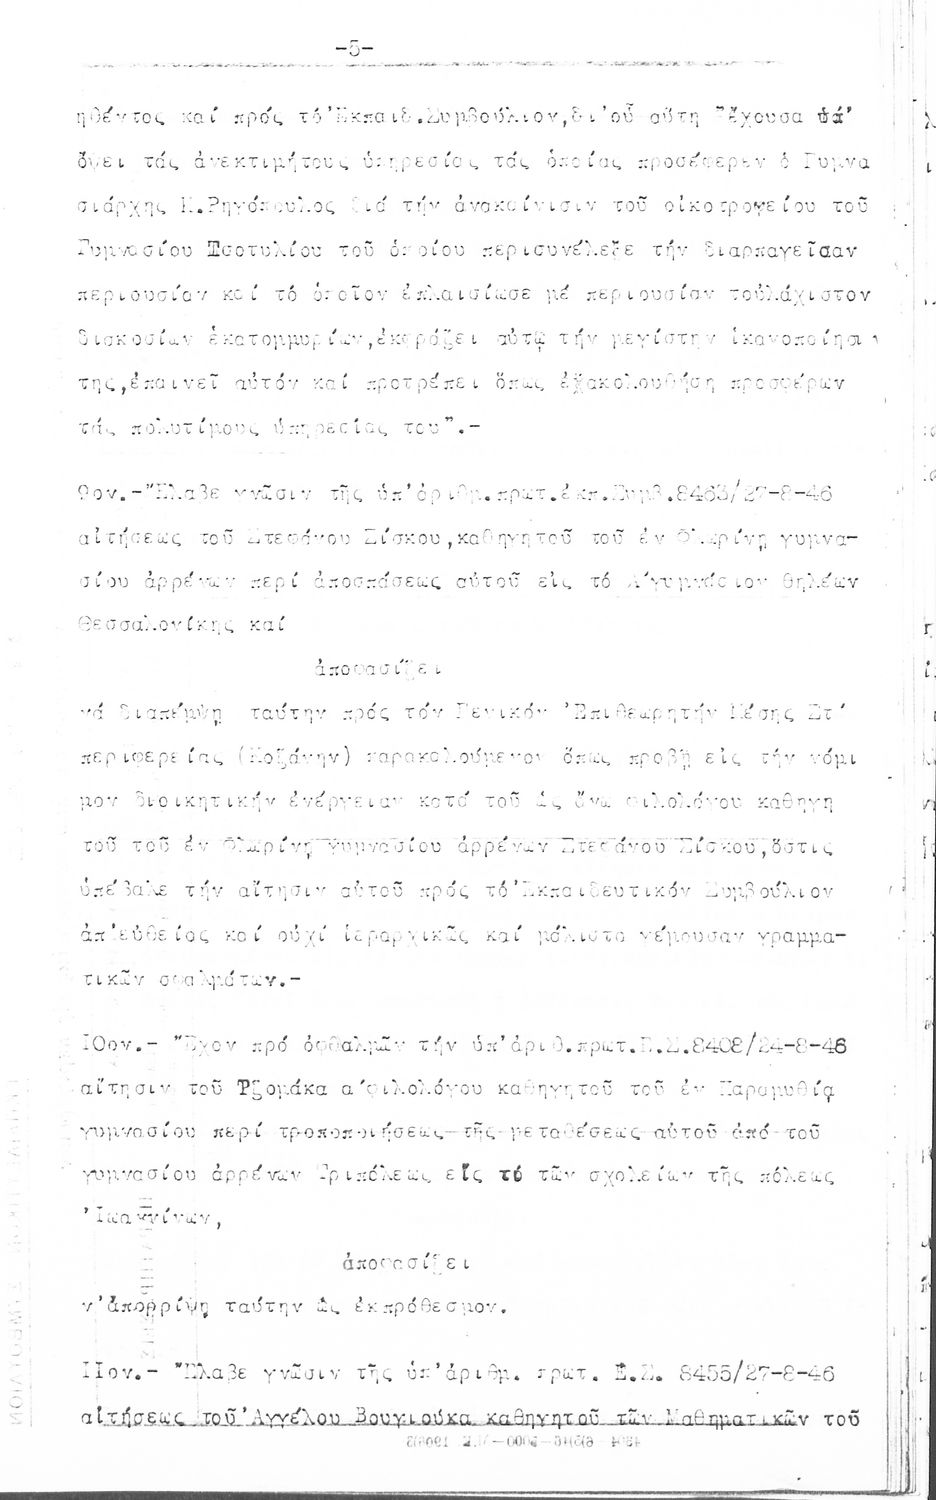 -5-
ηθέντος καί πρός τό Ἐκπαιδ.Συμβούλιον,δι'οὗ αὕτη "ἔχουσα ὑπ'
ὄψει τάς ἀνεκτιμήτους ὑπηρεσίας τάς ὁποίας προσέφερεν ὁ Γυμνα
σιάρχης Κ.Ρηγόπουλος διά τήν ἀνακαίνισιν τοῦ οἰκοτροφείου τοῦ
Γυμνασίου Τσοτυλίου τοῦ ὁποίου περισυνέλεξε τήν διαρπαγεῖσαν
περιουσίαν καί τό ὁποῖον ἐπλαισίωσε μέ περιουσίαν τοὐλάχιστον
διακοσίων ἑκατομμυρίων,ἐκφράζει αὐτῷ τήν μεγίστην ἱκανοποίησι ν
της,ἐπαινεῖ αὐτόν καί προτρέπει ὅπως ἐξακολουθήση προσφέρων
τάς πολυτίμους ὑπηρεσίας του".-
9ον.-"Ἔλαβε γνῶσιν τῆς ὑπ'ἀριθμ.πρωτ.ἐκπ.Συμβ.8463/27-8-46
αἰτήσεως τοῦ Στεφάνου Σίσκου,καθηγητοῦ τοῦ ἐν Φλωρίνῃ γυμνα-
σίου ἀρρένων περί ἀποσπάσεως αὐτοῦ εἰς τό Α'γυμνάσιον θηλέων
Θεσσαλονίκης καί
ἀποφασίζει
νά διαπέμψῃ ταύτην πρός τόν Γενικόν Ἐπιθεωρητήν Μέσης Στ'
περιφερείας (Κοζάνην) παρακαλούμενον ὅπως προβῇ εἰς τήν νόμι
μον διοικητικήν ἐνέργειαν κατά τοῦ ὡς ἄνω φιλολόγου καθηγη
τοῦ τοῦ ἐν Φλωρίνῃ γυμνασίου ἀρρένων Στεφάνου Σίσκου,ὅστις
ὑπέβαλε τήν αἴτησιν αὐτοῦ πρός τό Ἐκπαιδευτικόν Συμβούλιον
ἀπ'εὐθείας καί οὐχί ἱεραρχικῶς καί μάλιστα γέμουσαν γραμμα-
τικῶν σφαλμάτων.-
10ον.- "Ἔχον πρό ὀφθαλμῶν τήν ὑπ'ἀριθ.πρωτ.Ε.Σ.8408/24-8-46
αἴτησιν τοῦ Τζομάκα α'φιλολόγου καθηγητοῦ τοῦ ἐν Παραμυθίᾳ
γυμνασίου περί τροποποιήσεως τῆς μεταθέσεως αὐτοῦ ἀπό τοῦ
γυμνασίου ἀρρένων Τριπόλεως εἰς τό τῶν σχολείων τῆς πόλεως
Ἰωαννίνων,
ἀποφασίζει
ν'ἀπορρίψῃ ταύτην ὡς ἐκπρόθεσμον.
11ον.- "Ἔλαβε γνῶσιν τῆς ὑπ'ἀριθμ. πρωτ. Ε.Σ. 8455/27-8-46
αἰτήσεως τοῦ Ἀγγέλου Βουγιούκα καθηγητοῦ τῶν Μαθηματικῶν τοῦ